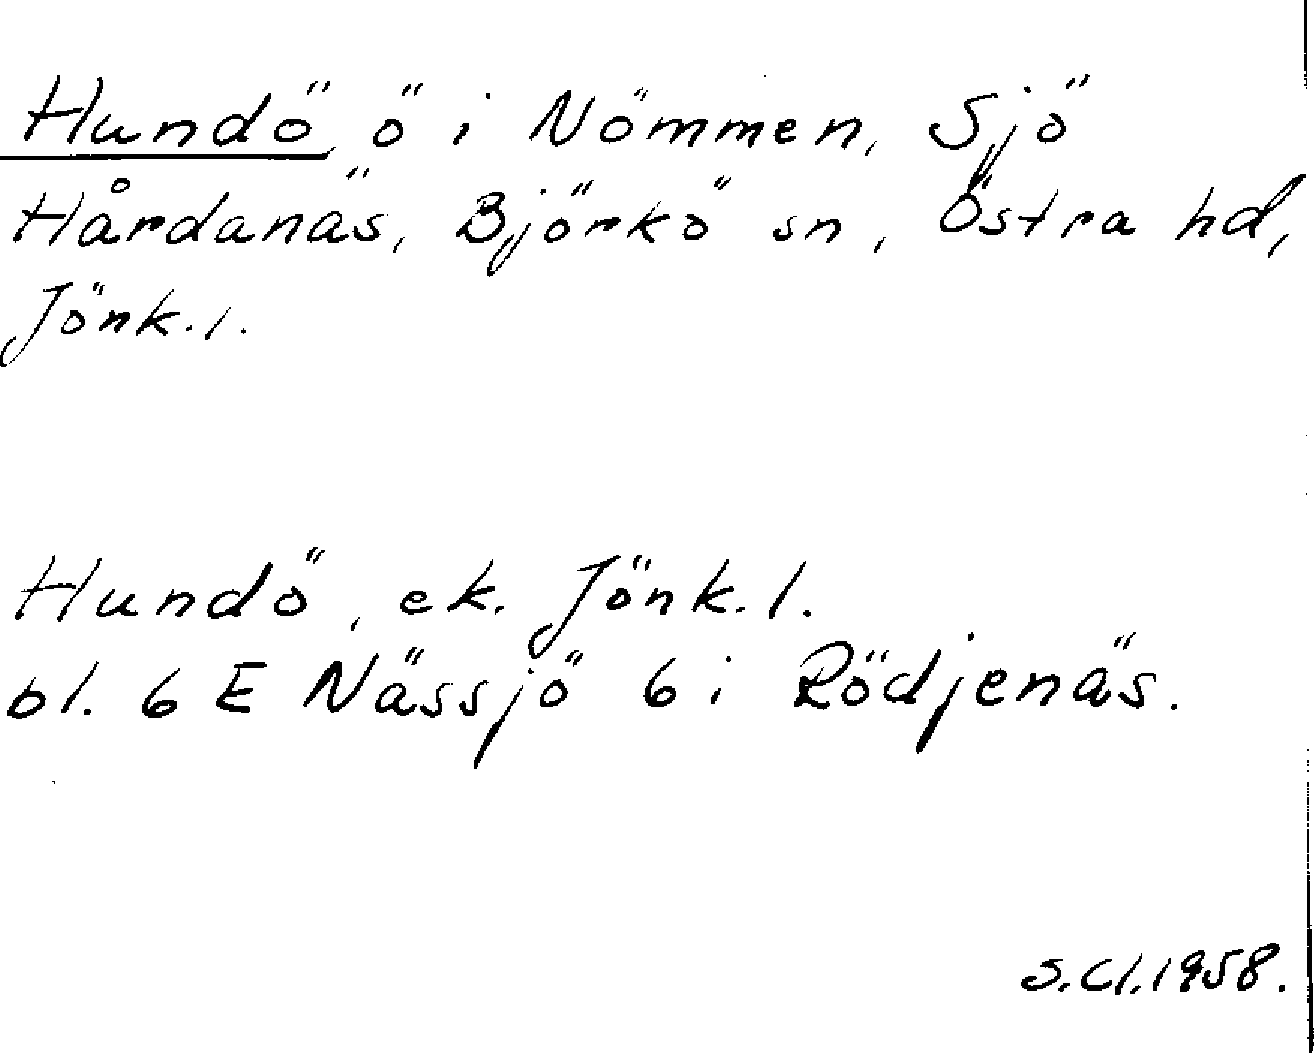 Hundö, ö i Nömmen, Sjö
Hårdanäs, Björkö sn, Östra hd,
Jönk.l.
Hundö, ek. Jönk.l.
bl. 6 E Nässjö 6 i Rödjenäs.
S.Cl.1958.